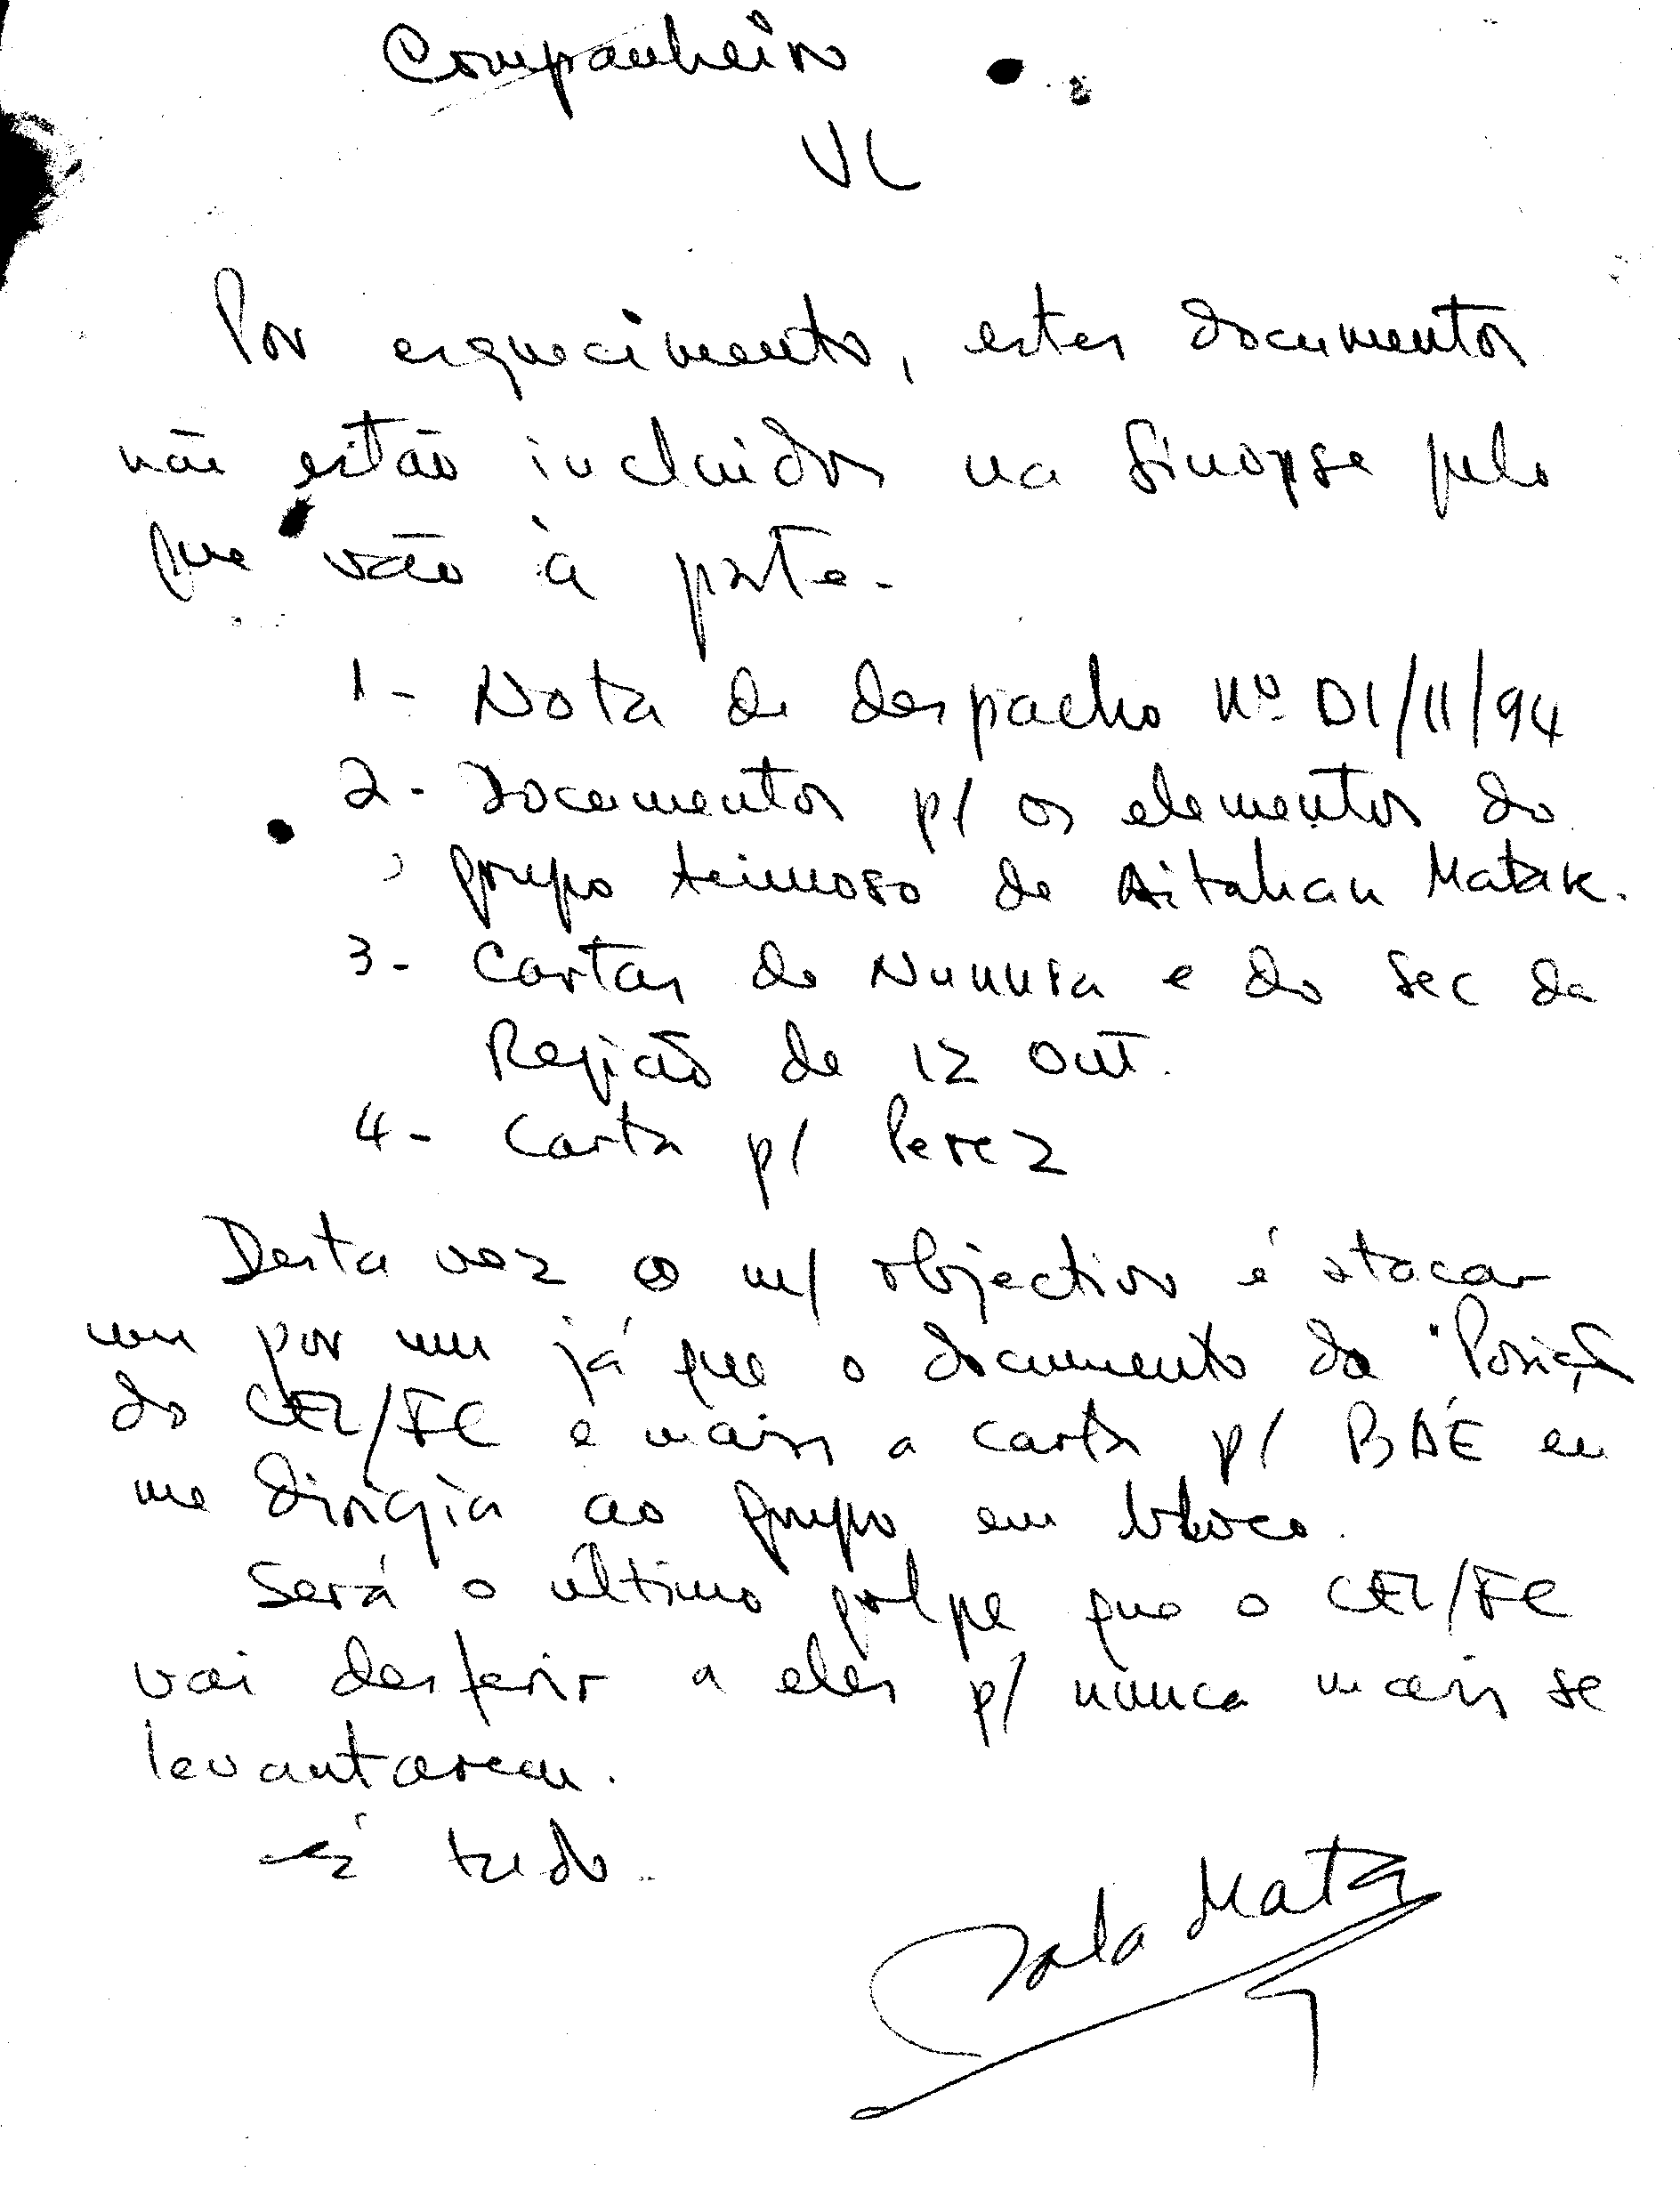 Companheiro
VL
Por esquecimento, estes documentos
não estão incluidos na Sinopse pelo
que vão à parte.
1- Nota de despacho Nº 01/11/94
2- Documentos p/ os elementos do
grupo teimoso de Aitahan Matak.
3- Cartas do Nunura e do sec da
Região de 12 Out.
4- Carta p/ Perez
Desta vez o m/ objectivo é atacar
um por um já que o documento da "Posição
do CEL/FC e mais a carta p/ BAÉ eu
me dirigia ao grupo em bloco.
Será o último golpe que o CEL/FC
vai desferir a eles p/ nunca mais se
levantarem.
É tudo.
Mata